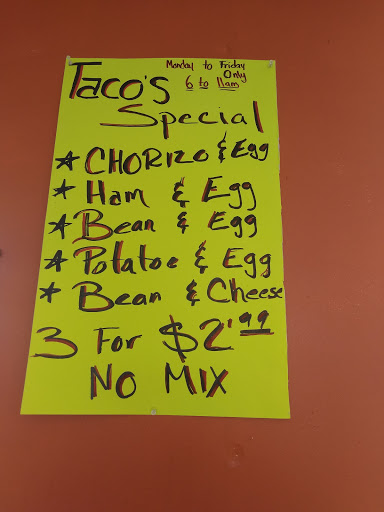 Taco's
Monday to Friday
Only
6 to 11am
Special
* CHORIZO & Egg
* Ham & Egg
* Bean & Egg
* Potatoe & Egg
* Bean & Cheese
3 For $2.99
NO MIX